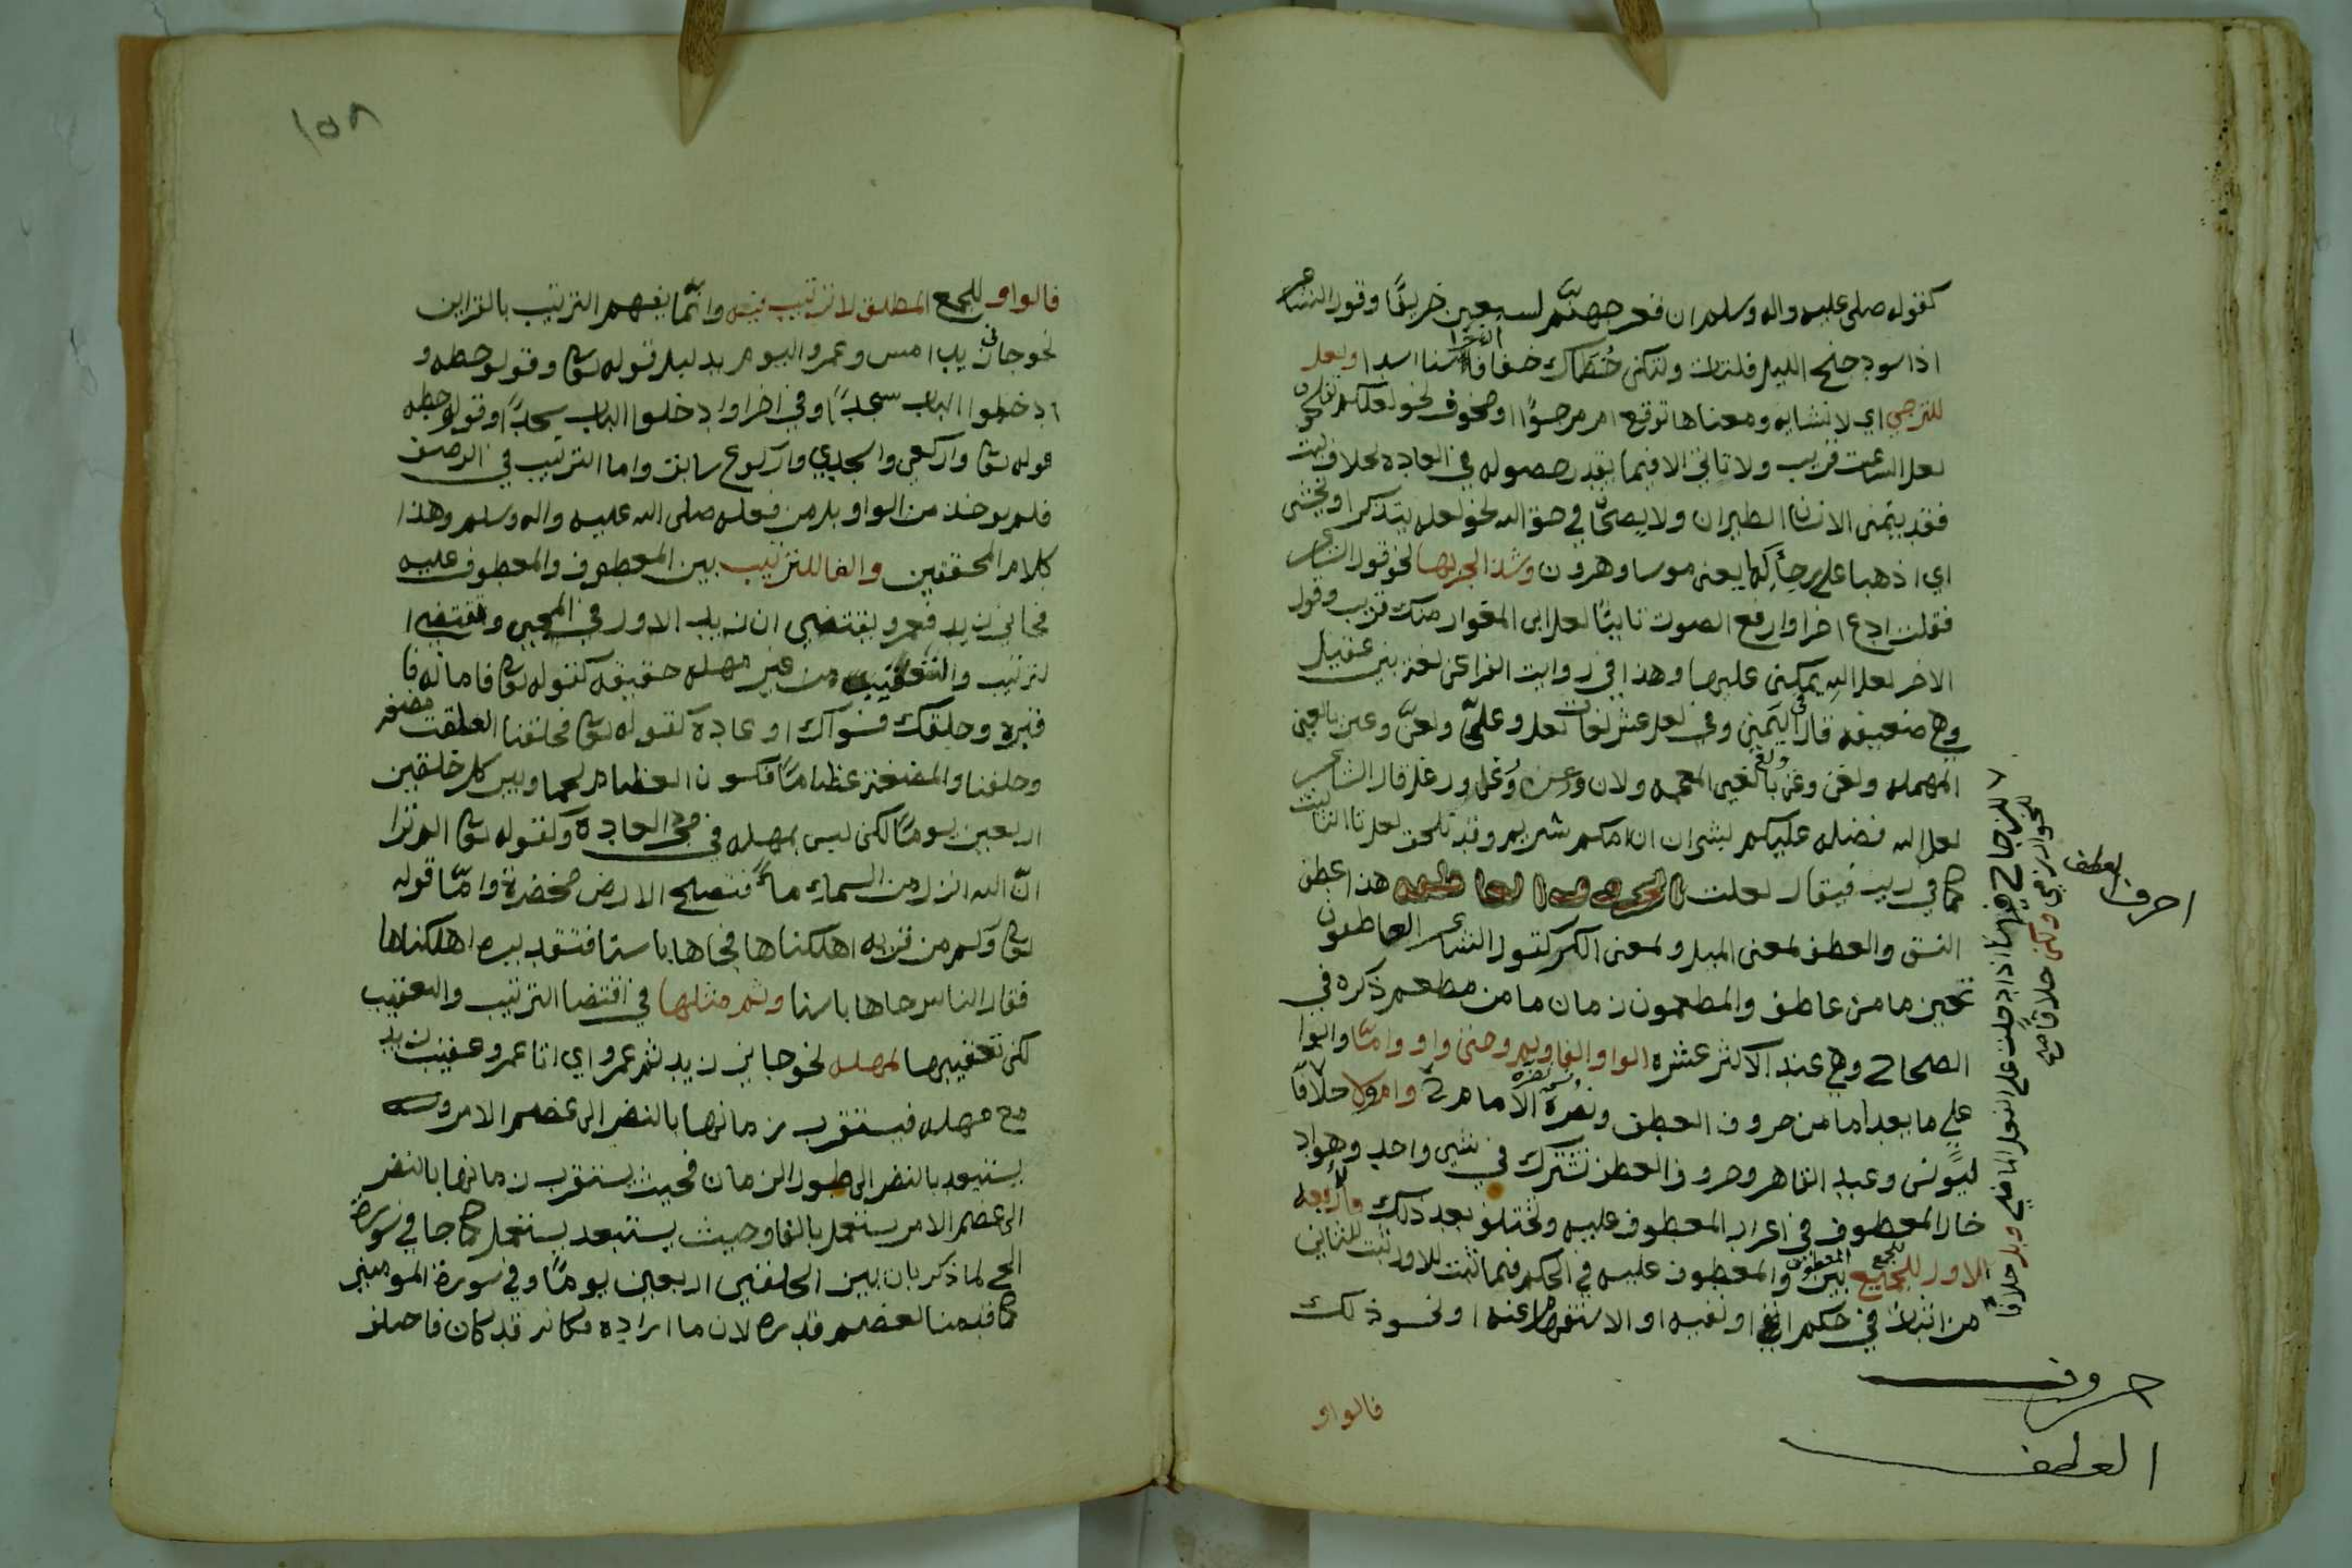 كقوله صلى عليه واله وسلم ان قعر جهنّم لسبعين خريفًا وقول الشاعر
اذا اسود جنح الليل فلتات ولتكن خُطاك خفافا ان حراسنا اسدا ولعل
للترجي اي لانشايه ومعناها توقع امر مرجوًّا او مخوف نحو لعلكم تفلحون
لعل الساعت قريب ولا تاتي الا فيما يقدر حصوله في العاده بخلاف ليت
فقد يتمنى الانسان الطيران ولا يصحّا في حق الله نحو لعله يتذكر او يخشى
اي اذهبا على رجائكما يعني موسا وهرون وشذ الجر بها نحو قول الشاعر
فقلت ادع اخرا وارفع الصوت ثانيًا لعل ابى المغوار منك قريب وقول
الاخر لعل الله يمكنني عليها وهذا في روايت الفرا عن لغة بني عقيل
وهي ضعيفه قال اليمني وفي لعل عشر لغات لعل وعلّ ولعنّ وعن بالعين
المهمله ولغن وغن بالغين المعجمه ولان وغل ورغل قال الشاعر
لعل الله فضله عليكم بشي ان امكم شريم وقد تلحق لعل تا التانيث
كما في ربت فيقال لعلت هذا عطف
النسق والعطف لمعنى الميل ولمعنى الكر كقول الشاعر العاطفون
تحين ما من عاطف والمطعمون زمان ما من مطعم ذكره في
الصحاح وهي عند الاكثر عشره الواو والفا وثم وحتى واو وامّا والوا
على ما بعد اما من حروف العطف ونصره الامام ي وام ولا خلافًا
ليونس وعبد القاهر وحروف العطف تشترك في شي واحد وهو اد
خال المعطوف في اعراب المعطوف عليه وتختلف بعد ذلك فالاربعه
الاول للجمع بين المعطوف والمعطوف عليه في الحكم فما ثبت للاول ثبت للثاني
من اثبات في حكم او نفيه او الاستفهام عنه او نحو ذلك
فالواو
احرف العطف
ولكن خلافًا
وبل خلافًا
حروف
العطف
١٥٨
فالواو للجمع المطلق لا ترتيب فيه وانّما يفهم الترتيب بالقراين
نحو جاني زيد امس وعمرو اليوم بدليل قوله تعالى وقولو حطه و
ادخلوا الباب سجدًا وفي اخرا وادخلوا الباب سجدًا وقولو حطه
قوله تعالى واركعي واسجدي والركوع سابق واما الترتيب في الوضو
فلم يوخذ من الواو بل من فعله صلى الله عليه واله وسلم وهذا
كلام المحققين والفا للترتيب بين المعطوف والمعطوف عليه
فجاني زيد فعمرو يقتضي ان زيد الاول في المجي وتقتضي ا
لترتيب والتعقيب من غير مهله حقيقه كقوله تعالى فاماته فا
قبره وخلقك فسواك او عادة كقوله تعالى فخلقنا العلقت مضغه
وخلقنا المضغة عظامًا فكسون العظام لحما وبين كل خلقين
اربعين يومًا لكن ليس بمهله في مجرى العادة وكقوله تعالى الم ترا
انّ الله انزل من السماء ماءً فتصبح الارض مخضرة وامّا قوله
تعالى وكم من قريه اهلكناها فجاها باسنا فتقديره اهلكناها
فقال الناس جاها باسنا وثم مثلها في اقتضا الترتيب والتعقيب
لكن تعقيبها لمهله نحو جاني زيد ثم عمرو اي اتا عمرو عقيب زيد
مع مهله فيستقرب زمانها بالنضر الى عضم الامر وقد
يستبعد بالنضر الى طول الزمان فحيث يستقرب زمانها بالنضر
الى عضم الامر يستعمل بالفا وحيث يستبعد يستعمل كما جا في سورة
الحج لما ذكر بان بين الخلقتين اربعين يومًا وفي سورة المومنين
كما قدمنا لعضم قدره لان ما اراده فكانه قد كان فاصلة